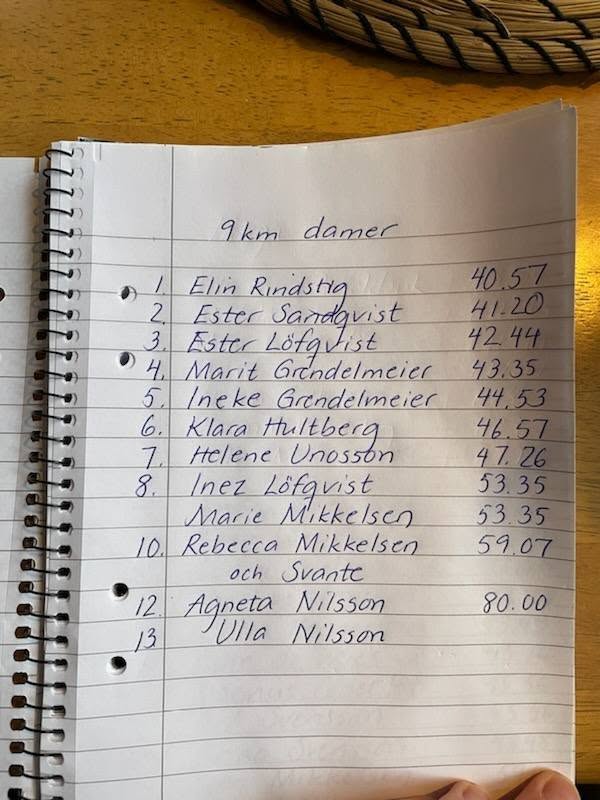 9km damer
1. Elin Rindstig 40.57
2. Ester Sandqvist 41.20
3. Ester Löfqvist 42.44
4. Marit Grendelmeier 43.35
5. Ineke Grendelmeier 44.53
6. Klara Hultberg 46.57
7. Helene Unosson 47.26
8. Inez Löfqvist 53.35
Marie Mikkelsen 53.35
10. Rebecca Mikkelsen 59.07
och Svante
12. Agneta Nilsson 80.00
13 Ulla Nilsson